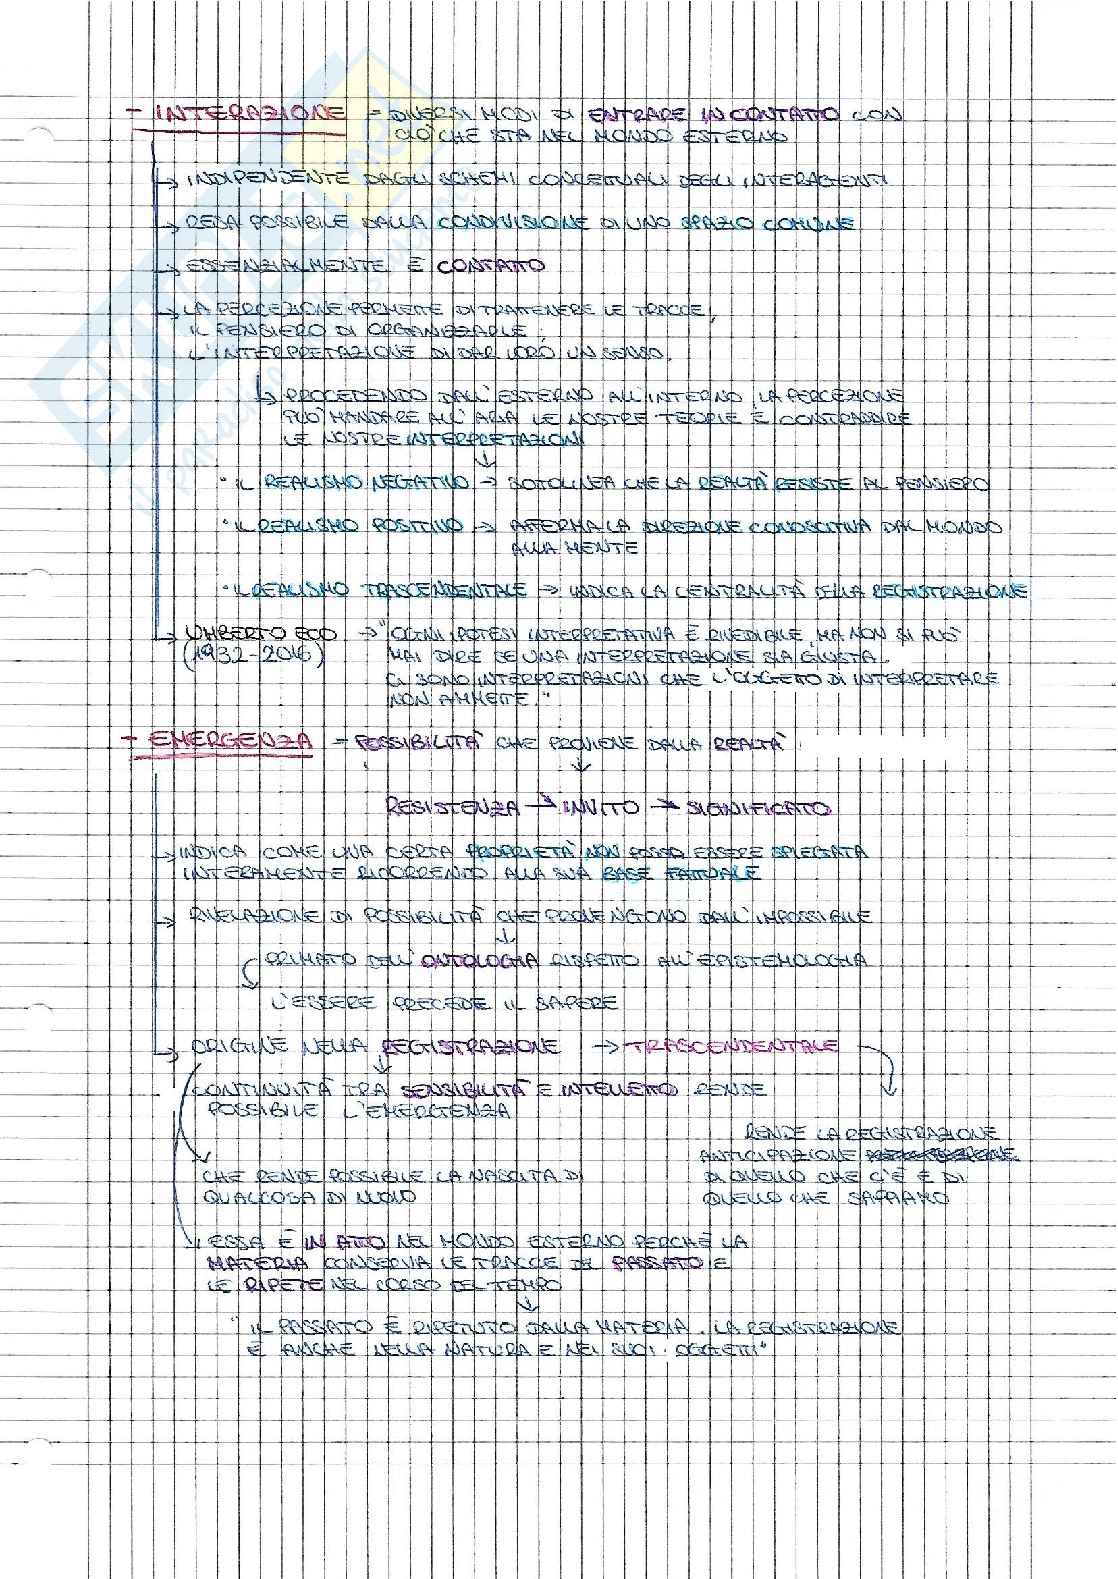 - INTERAZIONE - DIVERSI MODI DI ENTRARE IN CONTATTO CON
CIÒ CHE STA NEL MONDO ESTERNO
→ INDIPENDENTE DAGLI SCHEMI CONCETTUALI DEGLI INTERAGENTI
→ RESA POSSIBILE DALLA CONDIVISIONE DI UNO SPAZIO COMUNE
→ ESSENZIALMENTE È CONTATTO
→ LA PERCEZIONE PERMETTE DI TRATTENERE LE TRACCE,
IL PENSIERO DI ORGANIZZARLE,
L'INTERPRETAZIONE DI DAR LORO UN SENSO.
↳ PROCEDENDO DALL'ESTERNO ALL'INTERNO, LA PERCEZIONE
PUÒ MANDARE ALL'ARIA LE NOSTRE TEORIE E CONTRADDIRE
LE NOSTRE INTERPRETAZIONI
↓
• IL REALISMO NEGATIVO → SOTTOLINEA CHE LA REALTÀ RESISTE AL PENSIERO
• IL REALISMO POSITIVO → AFFERMA LA DIREZIONE CONOSCITIVA DAL MONDO
ALLA MENTE
• IL REALISMO TRASCENDENTALE → INDICA LA CENTRALITÀ DELLA REGISTRAZIONE
→ UMBERTO ECO → "OGNI IPOTESI INTERPRETATIVA È RIVEDIBILE, MA NON SI PUÒ
(1932-2016) MAI DIRE SE UNA INTERPRETAZIONE SIA GIUSTA.
CI SONO INTERPRETAZIONI CHE L'OGGETTO DI INTERPRETARE
NON AMMETTE."
- EMERGENZA - POSSIBILITÀ CHE PROVIENE DALLA REALTÀ
↓
RESISTENZA → INVITO → SIGNIFICATO
→ INDICA COME UNA CERTA PROPRIETÀ NON POSSA ESSERE SPIEGATA
INTERAMENTE RICORRENDO ALLA SUA BASE FATTUALE
→ RIVELAZIONE DI POSSIBILITÀ CHE PROVENGONO DALL'IMPOSSIBILE
↓
PRIMATO DELL'ONTOLOGIA RISPETTO ALL'EPISTEMOLOGIA
L'ESSERE PRECEDE IL SAPERE
→ ORIGINE NELLA REGISTRAZIONE → TRASCENDENTALE
↓
CONTINUITÀ TRA SENSIBILITÀ E INTELLETTO RENDE
POSSIBILE L'EMERGENZA
RENDE LA REGISTRAZIONE
ANTICIPAZIONE
DI QUELLO CHE C'È E DI
QUELLO CHE SAPPIAMO
CHE RENDE POSSIBILE LA NASCITA DI
QUALCOSA DI NUOVO
ESSA È IN ATTO NEL MONDO ESTERNO PERCHÈ LA
MATERIA CONSERVA LE TRACCE DEL PASSATO E
LE RIPETE NEL CORSO DEL TEMPO
↓
"IL PASSATO È RIPETUTO DALLA MATERIA. LA REGISTRAZIONE
È ANCHE NELLA NATURA E NEI SUOI OGGETTI"